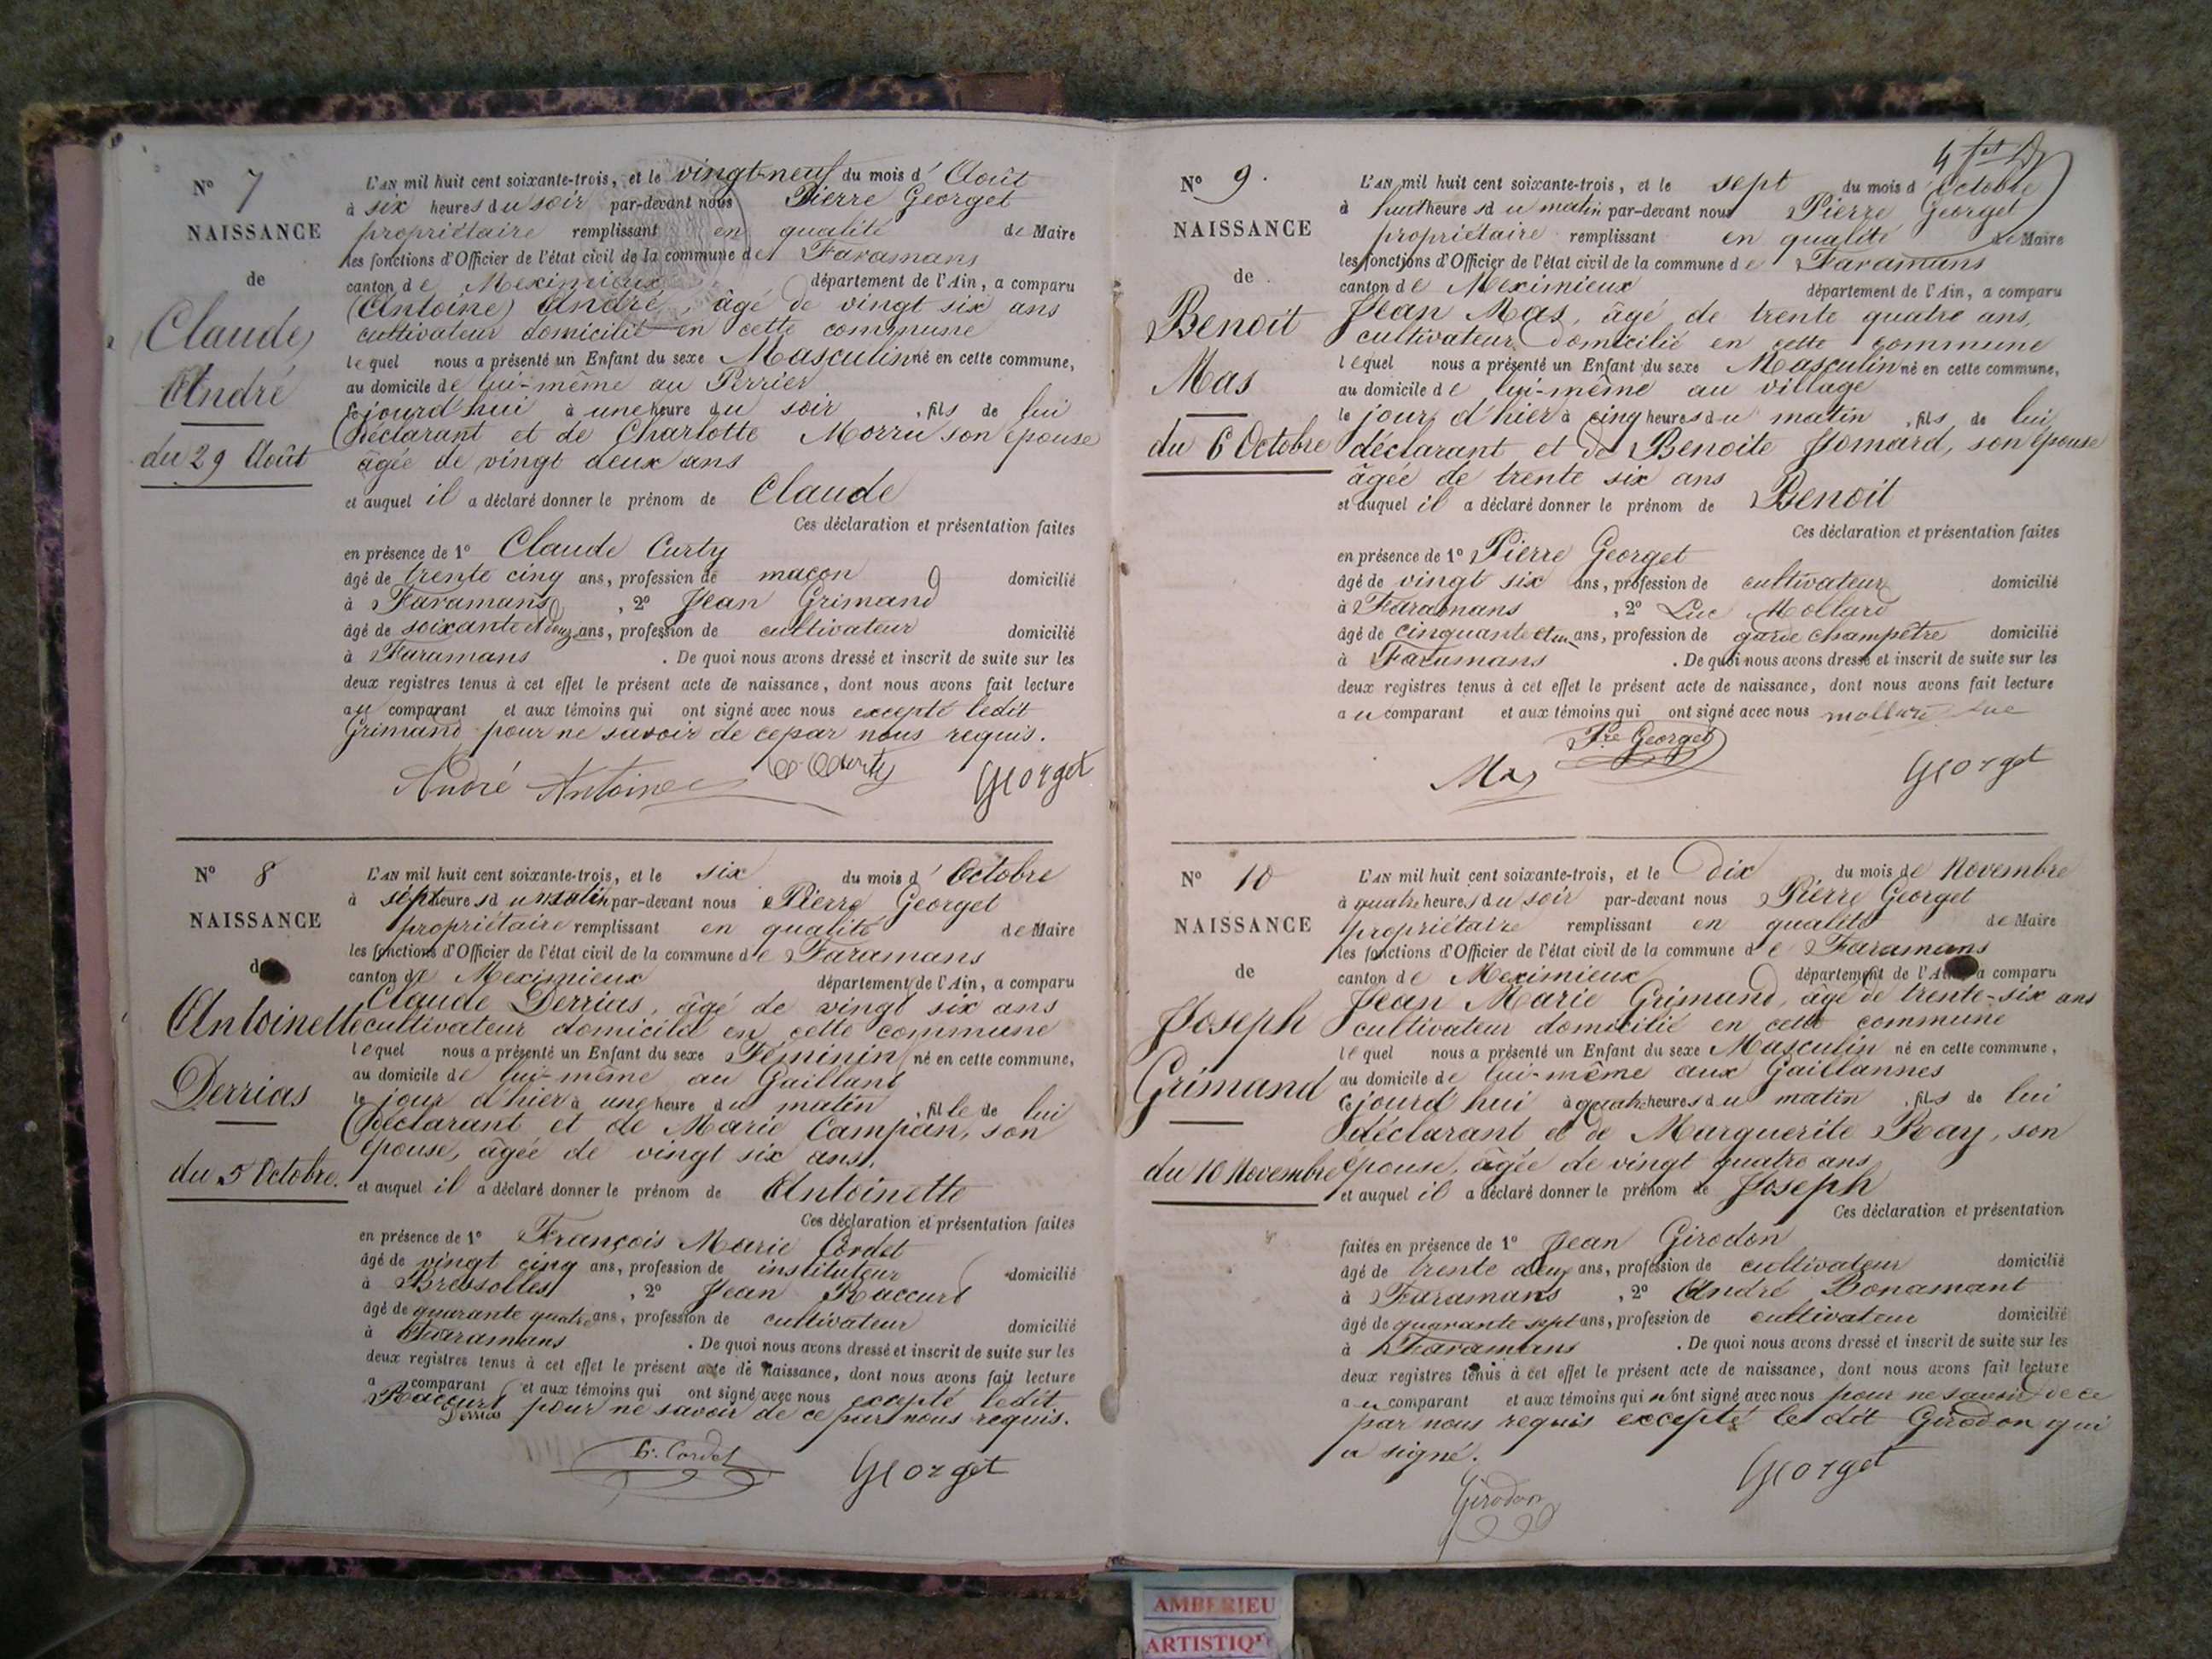 N° 7
NAISSANCE
de
Claude
André
du 29 Août
L'AN mil huit cent soixante-trois, et le vingt-neuf du mois d'Août
à six heures du soir par-devant nous Pierre Georget
propriétaire remplissant en qualité de Maire
les fonctions d'Officier de l'état civil de la commune de Faramans
canton de Meximieux département de l'Ain, a comparu
(Antoine) André, âgé de vingt six ans
cultivateur domicilié en cette commune
lequel nous a présenté un Enfant du sexe Masculin né en cette commune,
au domicile de lui-même au Perrier
cejourd'hui à une heure du soir, fils de lui
déclarant et de Charlotte Morru son épouse
âgée de vingt deux ans
et auquel il a déclaré donner le prénom de Claude
Ces déclaration et présentation faites
en présence de 1° Claude Curty
âgé de trente cinq ans, profession de maçon domicilié
à Faramans, 2° Jean Grimand
âgé de soixante et deux ans, profession de cultivateur domicilié
à Faramans. De quoi nous avons dressé et inscrit de suite sur les
deux registres tenus à cet effet le présent acte de naissance, dont nous avons fait lecture
au comparant et aux témoins qui ont signé avec nous excepté ledit
Grimand pour ne savoir de ce par nous requis.
André Antoine C. Curty Georget
N° 8
NAISSANCE
de
Antoinette
Derrias
du 5 Octobre.
L'AN mil huit cent soixante-trois, et le six du mois d'Octobre
à sept heures du matin par-devant nous Pierre Georget
propriétaire remplissant en qualité de Maire
les fonctions d'Officier de l'état civil de la commune de Faramans
canton de Meximieux département de l'Ain, a comparu
Claude Derrias, âgé de vingt six ans
cultivateur domicilié en cette commune
lequel nous a présenté un Enfant du sexe Féminin né en cette commune,
au domicile de lui-même au Gaillant
le jour d'hier à une heure du matin, fille de lui
déclarant et de Marie Campan, son
épouse, âgée de vingt six ans,
et auquel il a déclaré donner le prénom de Antoinette
Ces déclaration et présentation faites
en présence de 1° François Marie Cordet
âgé de vingt cinq ans, profession de instituteur domicilié
à Bressolles, 2° Jean Raccurt
âgé de quarante quatre ans, profession de cultivateur domicilié
à Faramans. De quoi nous avons dressé et inscrit de suite sur les
deux registres tenus à cet effet le présent acte de naissance, dont nous avons fait lecture
a comparant et aux témoins qui ont signé avec nous excepté ledit
Raccurt pour ne savoir de ce par nous requis.
Derrias
Cordet Georget
4
N° 9.
NAISSANCE
de
Benoit
Mas
du 6 Octobre
L'AN mil huit cent soixante-trois, et le sept du mois d'Octobre
à huit heures du matin par-devant nous Pierre Georget
propriétaire remplissant en qualité de Maire
les fonctions d'Officier de l'état civil de la commune de Faramans
canton de Meximieux département de l'Ain, a comparu
Jean Mas, âgé de trente quatre ans,
cultivateur domicilié en cette commune
lequel nous a présenté un Enfant du sexe Masculin né en cette commune,
au domicile de lui-même au village
le jour d'hier à cinq heures du matin, fils de lui
déclarant et de Benoite Jomard, son épouse
âgée de trente six ans
et auquel il a déclaré donner le prénom de Benoit
Ces déclaration et présentation faites
en présence de 1° Pierre Georget
âgé de vingt six ans, profession de cultivateur domicilié
à Faramans, 2° Luc Mollard
âgé de cinquante et un ans, profession de garde champêtre domicilié
à Faramans. De quoi nous avons dressé et inscrit de suite sur les
deux registres tenus à cet effet le présent acte de naissance, dont nous avons fait lecture
au comparant et aux témoins qui ont signé avec nous mollard luc
Pre Georget
Mas Georget
N° 10
NAISSANCE
de
Joseph
Grimand
du 10 Novembre
L'AN mil huit cent soixante-trois, et le Dix du mois de Novembre
à quatre heures du soir par-devant nous Pierre Georget
propriétaire remplissant en qualité de Maire
les fonctions d'Officier de l'état civil de la commune de Faramans
canton de Meximieux département de l'Ain, a comparu
Jean Marie Grimand, âgé de trente-six ans
cultivateur domicilié en cette commune
lequel nous a présenté un Enfant du sexe Masculin né en cette commune,
au domicile de lui-même aux Gaillannes
cejourd'hui à quatre heures du matin, fils de lui
déclarant et de Marguerite Ray, son
épouse, âgée de vingt quatre ans
et auquel il a déclaré donner le prénom de Joseph
Ces déclaration et présentation
faites en présence de 1° Jean Girodon
âgé de trente deux ans, profession de cultivateur domicilié
à Faramans, 2° André Bonamant
âgé de quarante sept ans, profession de cultivateur domicilié
à Faramans. De quoi nous avons dressé et inscrit de suite sur les
deux registres tenus à cet effet le présent acte de naissance, dont nous avons fait lecture
au comparant et aux témoins qui n'ont signé avec nous pour ne savoir de ce
par nous requis excepté le dit Girodon qui
a signé.
Girodon Georget
AMBERIEU
ARTISTIQU